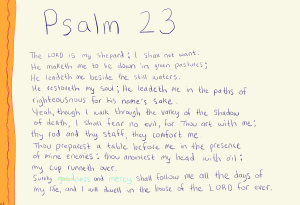 Psalm 23
The LORD is my shepard; I shall not want.
He maketh me to lie down in green pastures;
He leadeth me beside the still waters.
He restoreth my soul; He leadeth me in the paths of
righteousnous for his name's sake.
Yeah, though I walk through the valley of the shadow
of death, I shall fear no evil, for Thou art with me;
thy rod and thy staff, they comfort me
Thou preparest a table before me in the presence
of mine enemies; thou anointest my head with oil;
my cup runneth over.
Surely goodness and mercy shall follow me all the days of
my life, and I will dwell in the house of the LORD for ever.